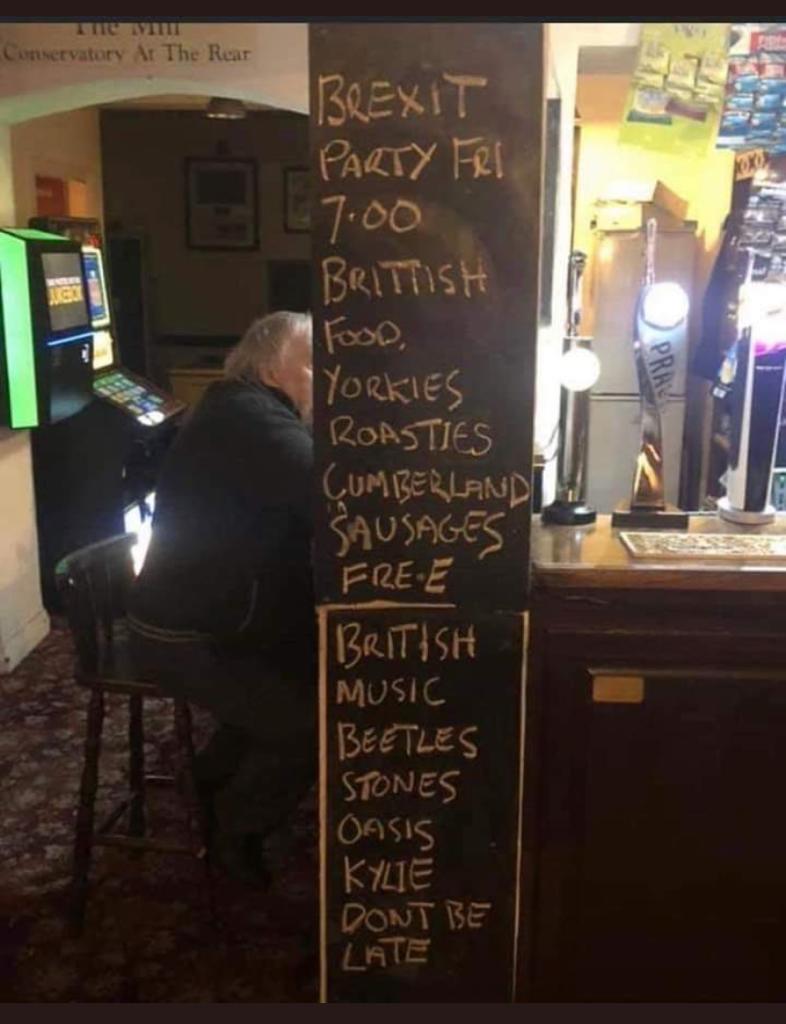 The Mill
Conservatory At The Rear
BREXIT
PARTY FRI
7.00
BRITTISH
FOOD,
YORKIES
ROASTIES
CUMBERLAND
SAUSAGES
FRE•E
BRITISH
MUSIC
BEETLES
STONES
OASIS
KYLIE
DONT BE
LATE
JUKEBOX
PRA